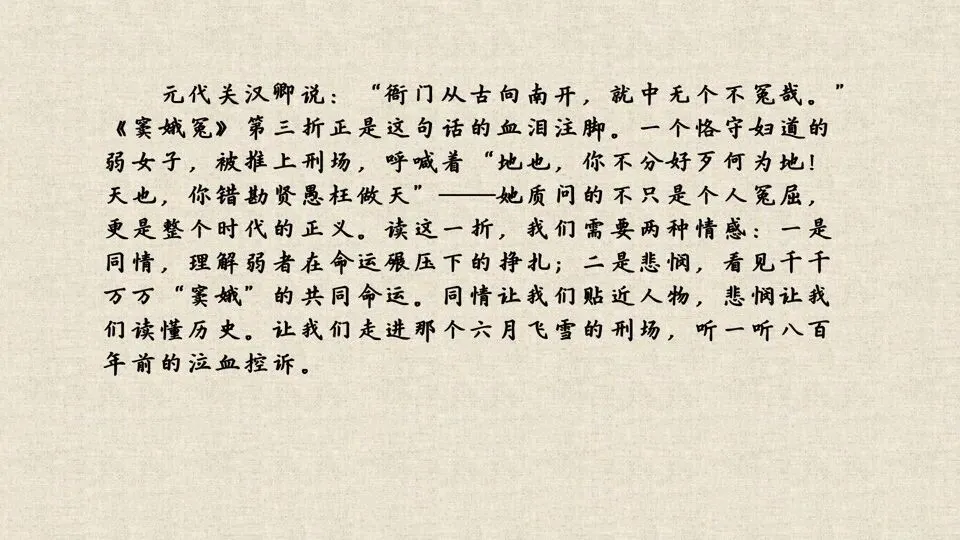 元代关汉卿说：“衙门从古向南开，就中无个不冤哉。”
《窦娥冤》第三折正是这句话的血泪注脚。一个恪守妇道的
弱女子，被推上刑场，呼喊着“地也，你不分好歹何为地！
天也，你错勘贤愚枉做天”——她质问的不只是个人冤屈，
更是整个时代的正义。读这一折，我们需要两种情感：一是
同情，理解弱者在命运碾压下的挣扎；二是悲悯，看见千千
万万“窦娥”的共同命运。同情让我们贴近人物，悲悯让我
们读懂历史。让我们走进那个六月飞雪的刑场，听一听八百
年前的泣血控诉。